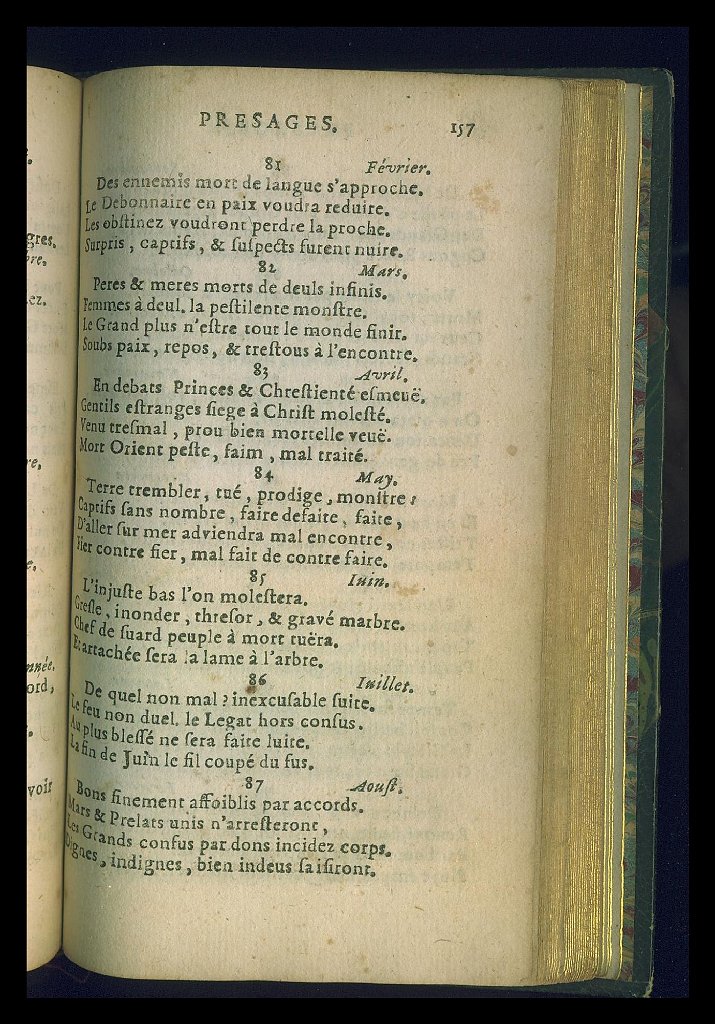 PRESAGES. 157
81 Février.
Des ennemis mort de langue s'approche.
Le Debonnaire en paix voudra reduire.
Les obſtinez voudront perdre la proche.
Surpris, captifs, & ſuſpects furent nuire.
82 Mars.
Peres & meres morts de deuls infinis.
Femmes à deul. la peſtilente monſtre.
Le Grand plus n'eſtre tout le monde finir.
Soubs paix, repos, & treſtous à l'encontre.
83 Avril.
En debats Princes & Chreſtienté eſmeuë.
Gentils eſtranges ſiege à Chriſt moleſté.
Venu treſmal, prou bien mortelle veuë.
Mort Orient peſte, faim, mal traité.
84 May.
Terre trembler, tué, prodige, monſtre:
Captifs ſans nombre, faire defaite, faite,
D'aller ſur mer adviendra mal encontre,
Fier contre fier, mal fait de contre faire.
85 Iuin.
L'injuſte bas l'on moleſtera.
Greſle, inonder, threſor, & gravé marbre.
Chef de ſuard peuple à mort tuëra.
Et attachée ſera la lame à l'arbre.
86 Iuillet.
De quel non mal? inexcuſable ſuite.
Le feu non duel. le Legat hors conſus.
Au plus bleſſé ne ſera faite luite.
La fin de Juin le fil coupé du fus.
87 Aouſt.
Bons finement affoiblis par accords.
Mars & Prelats unis n'arreſteront,
Les Grands confus par dons incidez corps.
Dignes, indignes, bien indeus ſaiſiront.
gres.
bre.
ez.
re,
e.
nnée.
ord,
voir